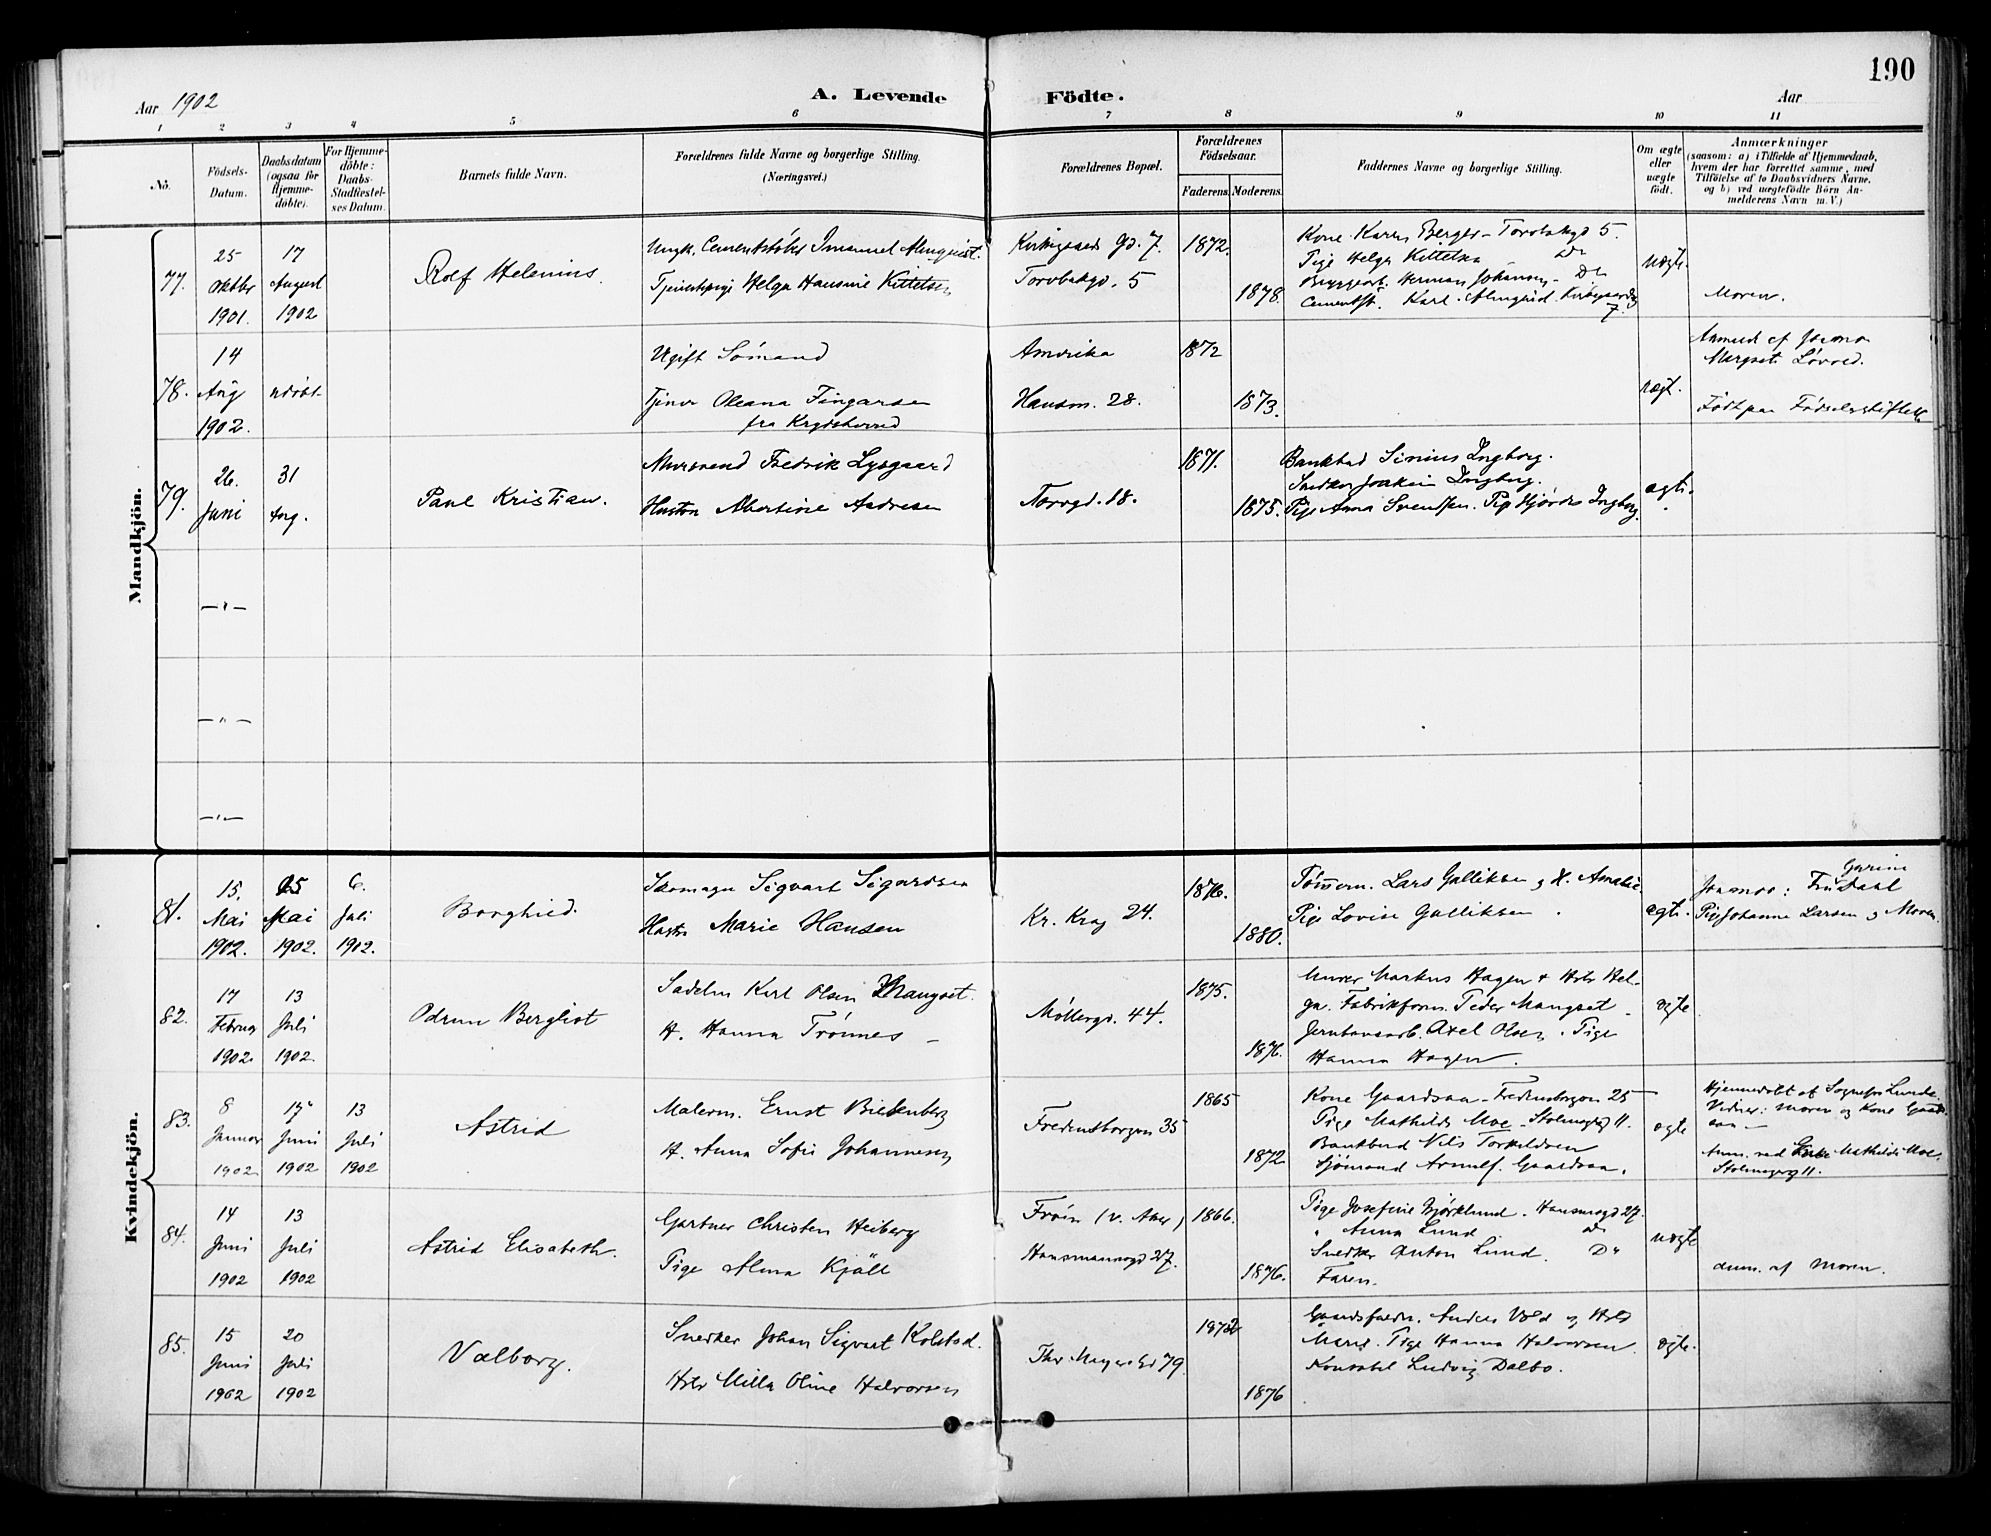 190
Aar 1902
A. Levende Födte.
Aar
1 2 3 4 5 6 7 8 9 10 11
No.
Födsels-
Datum.
Daabsdatum
(ogsaa for
Hjemme-
döbte).
For Hjemme-
döbte:
Daabs-
Stadfæstel-
ses Datum.
Barnets fulde Navn.
Forældrenes fulde Navne og borgerlige Stilling.
(Næringsvei.)
Forældrenes Bopæl.
Forældrenes
Födselsaar.
Faderens.
Moderens.
Faddernes Navne og borgerlige Stilling.
Om ægte
eller
uægte
födt.
Anmærkninger
(saasom: a) i Tilfælde af Hjemmedaab,
hvem der har forrettet samme, med
Tilföielse af to Daabsvidners Navne,
og b) ved uægtefödte Börn An-
melderens Navn m. V.)
Mandkjön.
77.
25
Oktbr
1901.
17
August
1902
Rolf Helenius.
Ungk. Cementstøber Imanuel Almqvist.
Tjenestepige Helga Hansine Kittelsen
Kirkegaards Gd. 7.
Torvbakgd. 5
1872.
1878.
Kone Karen Berger - Torvbakgd 5.
Pige Helga Kittelsen - Do
Bryggearb. Herman Johansen - Do
Cementst. Karl Almqvist. Kirkegaardsg
7.
uægte.
Moren.
78.
14
Aug
1902.
udøbt
Ugift Sømand
Tjener Oleana Fingarsen
fra Krydsherred
Amerika
Hausm. 28.
1872
1873.
uægt.
Anmeldt af Jormo
Margrete Løvold.
Født paa Fødselsstiftels.
79.
26.
Juni
31
Aug.
Paul Kristian.
Mursvend Fredrik Lysgaard
Hustru Albertine Andresen
Torvgd. 18.
1871.
1875.
Bankbud Sinius Ingborg.
Snedker Joakim Ingborg.
Pige Anna Svendsen. Pig Hjørdis Ingborg.
ægte.
— " —
— " —
— " —
Kvindekjön.
81.
15.
Mai
1902.
25
Mai
1902.
6.
Juli
1902.
Borghild.
Skomager Sigvart Sigurdsen
Hustru Marie Hansen
Kr. Krog 24.
1876.
1880.
Tømmerm. Lars Gulliksen og H. Amalie
Pige Lovise Gulliksen.
ægte.
Gurine
Jormor: Frudaal
Pige Johanne Larsen og Moren.
82.
17
Februar
1902
13
Juli
1902.
Odrun Bergliot
Sadelm Karl Olsen Mangset.
H. Hanna Trønnes -
Møllergd. 44.
1875.
1876.
Murer Markus Hagen + Hstr Hel-
ga. Fabrikform. Peder Mangset -
Jernbanearb. Axel Olsen. Pige
Hanna Hagen.
ægte
83.
8
Januar
1902
17
Juni
1902
13
Juli
1902
Astrid
Malerm. Ernst Birkenberg
H. Anna Sofie Johannesen
Fredensborgvn 35
1865
1872
Kone Gaardsaa - Fredensborgvn 25
Pige Mathilde Moe - Stolmagerg 11.
Bankbud Nils Torkildsen
Sjømand Arnulf Gaardsaa.
ægte
Hjemmedøbt af Sognepr. Lunde.
Vidner: Moren og Kone Gaard-
saa —
Anm. ved Enke Mathilde Moe.
Stolmagerg 11.
84.
14
Juni
1902
13
Juli
1902
Astrid Elisabeth.
Gartner Christen Heiberg
Pige Alma Kjäll
Frøen (v. Aker)
Hausmannsgd 27.
1866.
1876.
Pige Josefine Björklund. Hausmsgd 27.
" Anna Lund Do
Snedker Anton Lund. Do
Faren.
uægte
Anm. af Moren.
85.
15
Juni
1902
20
Juli
1902
Valborg.
Snedker Johan Sigvart Kolstad.
Hstr Milla Oline Halvorsen
Thv Meyers Gd 79
1872
1876
Gaardsforv. Anders Vold og Hstr
Marie. Pige Hanna Halvorsen.
Konstabel Ludvig Dalbo.
ægte.